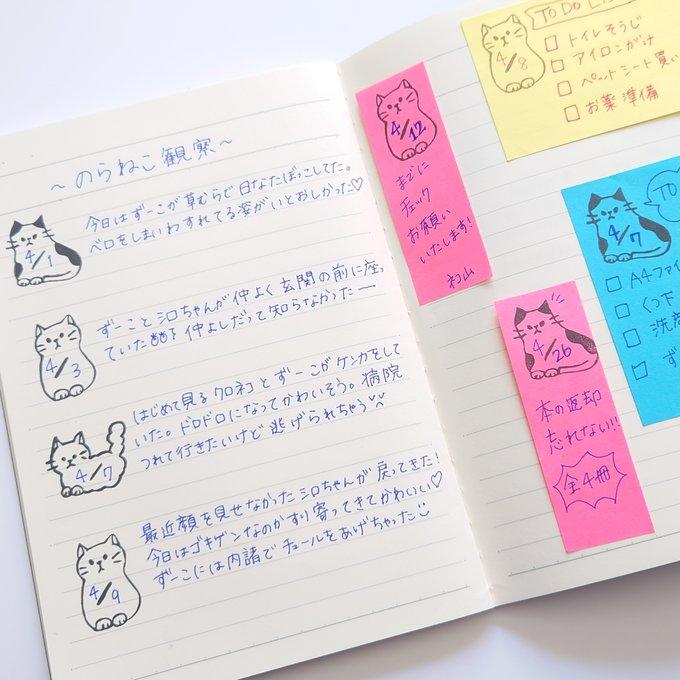 ～のらねこ観察～
4/1
今日はずーこが草むらで日なたぼっこしてた。
ベロをしまいわすれてる姿がいとおしかった♡
4/3
ずーことシロちゃんが仲よく玄関の前に座っ
ていた 仲よしだって知らなかったー
4/7
はじめて見るクロネコとずーこがケンカをして
いた。ドロドロになってかわいそう。病院
つれて行きたいけど逃げられちゃう
4/9
最近顔を見せなかったシロちゃんが戻ってきた!
今日はゴキゲンなのかすり寄ってきてかわいい♡
ずーこには内諸でチュールをあげちゃった
4/12
までに
チェック
お願い
いたします!
ネコ山
TO DO LIS
4/8
□ トイレそうじ
□ アイロンがけ
□ ペットシート買い
□ お薬準備
4/7
TO
□ A4ファイ
□ くつ下
□ 洗
□ ず
4/26
本の返却
忘れない!!
全4冊